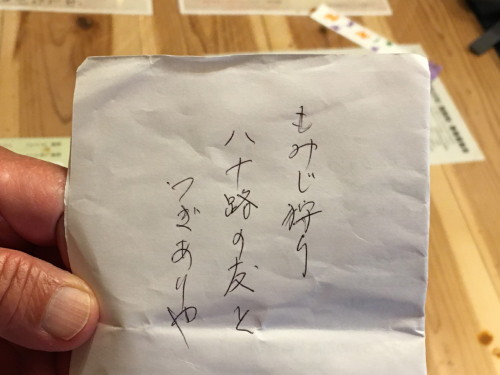 もみじ狩り
八十路の友と
つぎありや